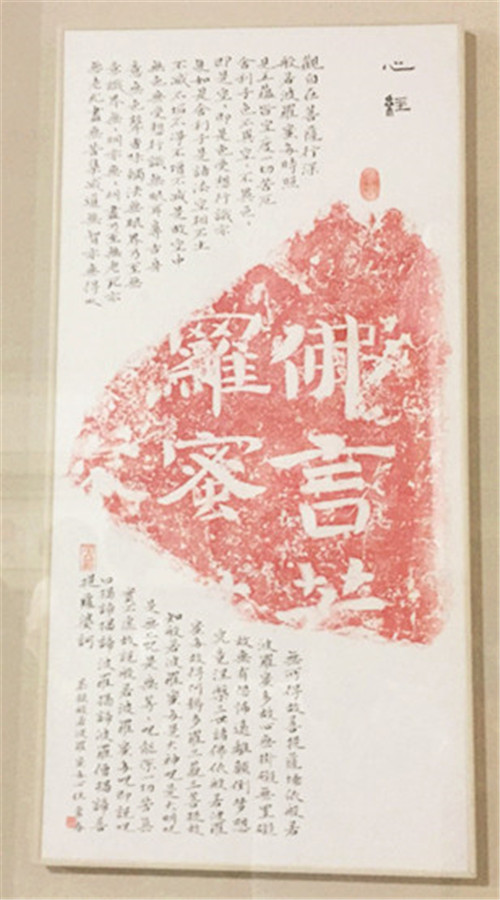 心經
觀自在菩薩行深
般若波羅蜜多時照
見五蘊皆空度一切苦厄
舍利子色不異空、不異色、
即是空、即是色受想行識亦
復如是舍利子是諸法空相不生
不滅不垢不淨不增不減是故空中
無色無受想行識無眼耳鼻舌身
意無色聲香味觸法無眼界乃至無
意識界無、明亦無、明盡乃至無老死亦
無老死盡無苦集滅道無智亦無得以
佛言
羅蜜
無所得故菩提薩埵依般若
波羅蜜多故心無掛礙無罣礙
故無有恐怖遠離顛倒夢想
究竟涅槃三世諸佛依般若波羅
蜜多故得阿耨多羅三藐三菩提故
知般若波羅蜜多是大神呪是大明呪
是無上呪是無等、呪能除一切苦真
實不虛故說般若波羅蜜多呪即說呪
曰揭諦揭諦波羅揭諦波羅僧揭諦菩
提薩婆訶
般若波羅蜜多心經